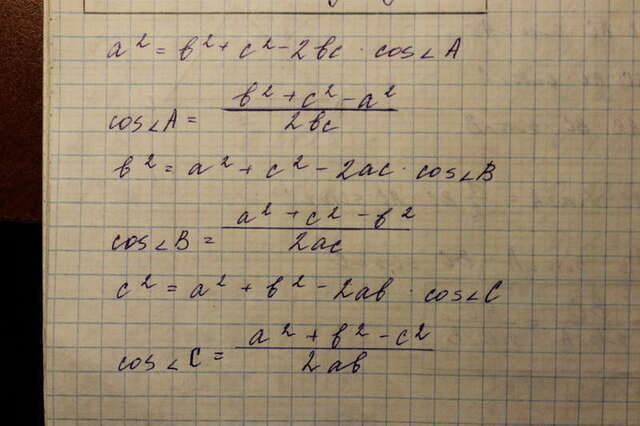 a² = b² + c² - 2bc · cos∠A
cos∠A = (b² + c² - a²) / 2bc
b² = a² + c² - 2ac · cos∠B
cos∠B = (a² + c² - b²) / 2ac
c² = a² + b² - 2ab · cos∠C
cos∠C = (a² + b² - c²) / 2ab